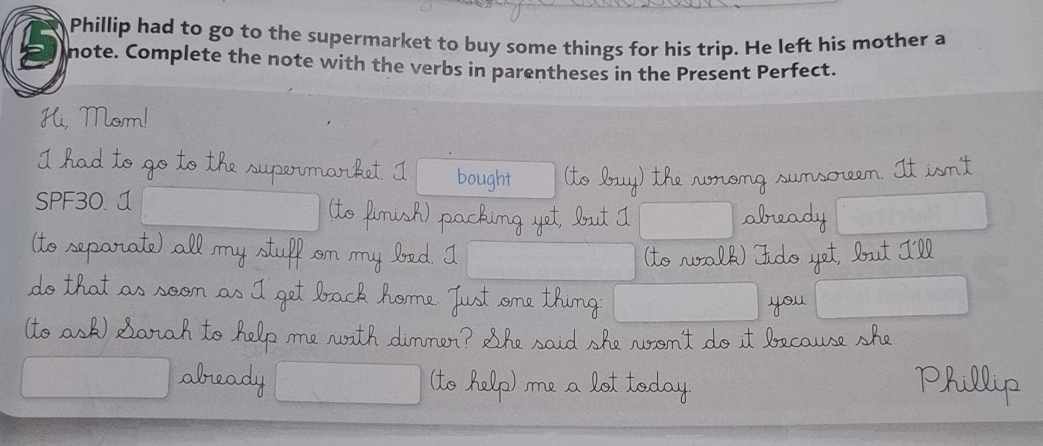 5 Phillip had to go to the supermarket to buy some things for his trip. He left his mother a
note. Complete the note with the verbs in parentheses in the Present Perfect.
Hi, Mom!
I had to go to the supermarket. I bought (to buy) the wrong sunscreen. It isn't
SPF30. I (to finish) packing yet, but I already
(to separate) all my stuff on my bed. I (to walk) Fido yet, but I'll
do that as soon as I get back home. Just one thing: you
(to ask) Sarah to help me with dinner? She said she won't do it because she
already (to help) me a lot today.
Phillip